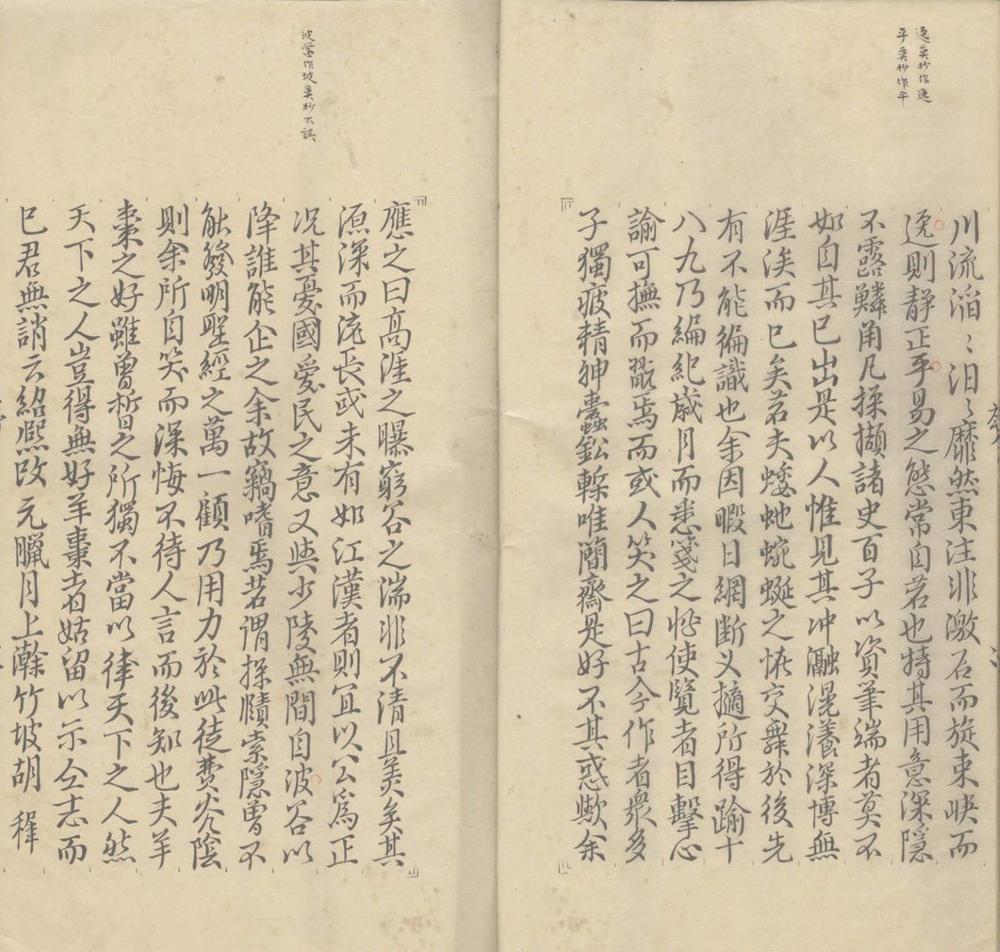 逸吳抄作逸
平吳抄作平
川流滔〻汨〻靡然東注非激石而旋束峽而
逸則靜正平易之態常自若也特其用意深隱
不露鱗角凡採擷諸史百子以資筆端者莫不
如自其已出是以人惟見其冲瀜滉瀁深博無
涯涘而已矣若夫蜲虵蜿蜒之恠交舞於後先
有不能徧識也余因暇日網斷义擿所得踰十
八九乃編紀歲月而悉箋之恍使覽者目擊心
諭可撫而翫焉而或人笑之曰古今作者衆多
子獨疲精神蠹鈆槧唯簡齋是好不其惑歟余
波當作坡吳抄不誤
應之曰高涯之曝窮谷之湍非不清且美矣其
源深而流長或未有如江漢者則宜以公爲正
况其憂國愛民之意又與少陵無間自波谷以
降誰能企之余故竊嗜焉若謂探賾索隱曾不
能發明聖經之萬一顧乃用力於此徒費光陰
則余所自笑而深悔不待人言而後知也夫羊
棗之好雖曾晳之所獨不當以律天下之人然
天下之人豈得無好羊棗者姑留以示仝志而
巳君無誚云紹熈改元臘月上澣竹坡胡穉